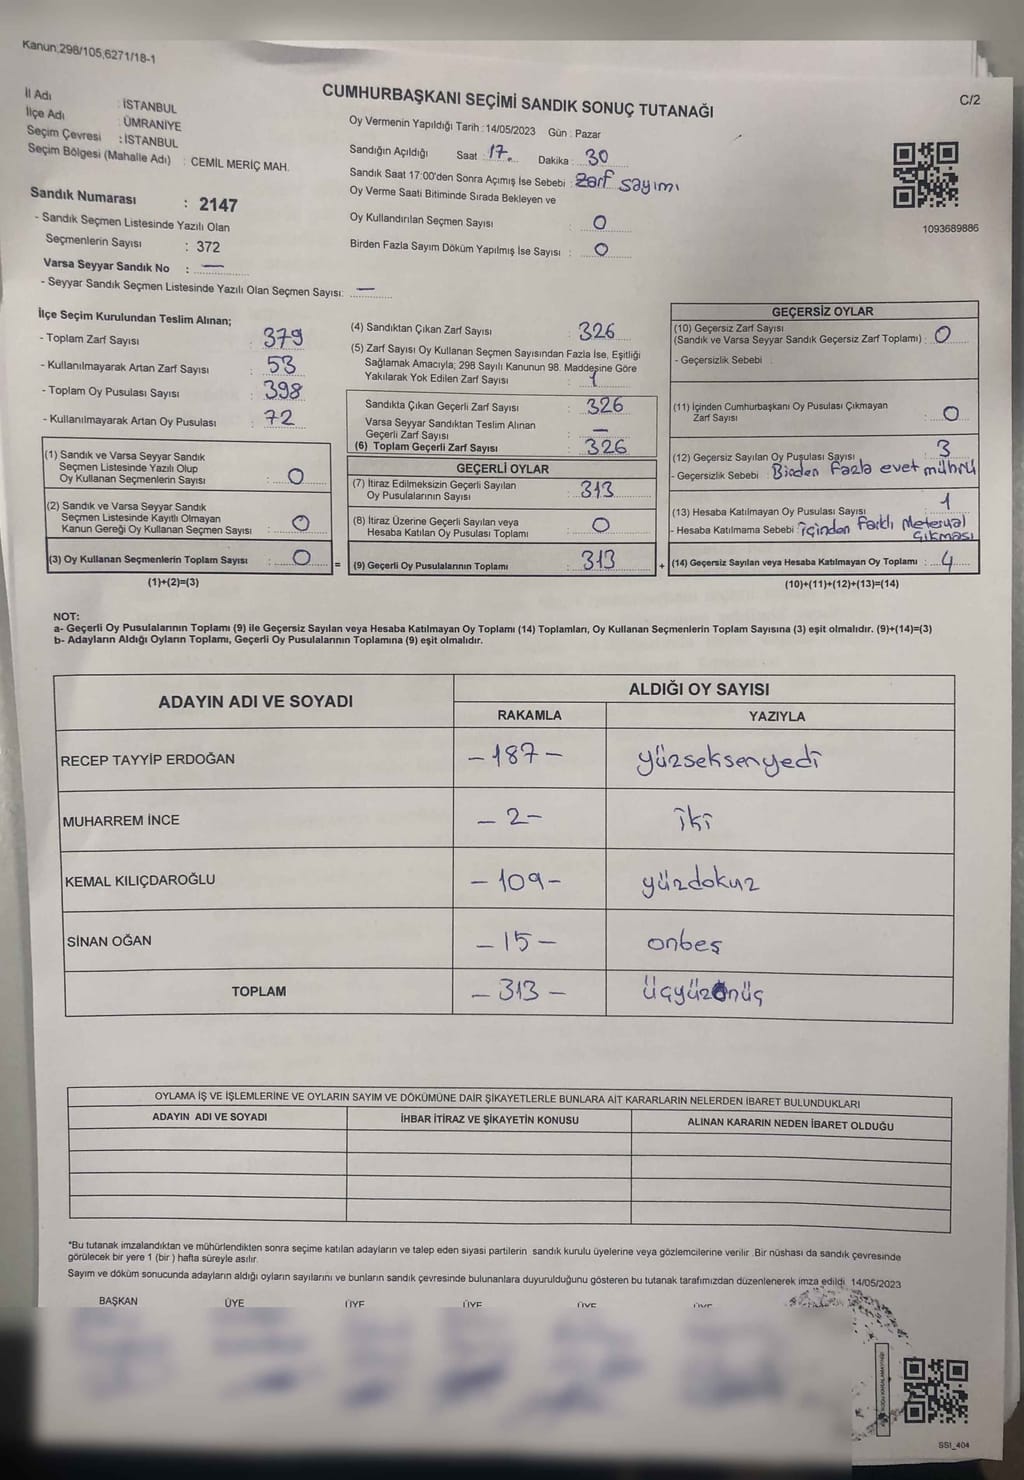 Kanun;298/105,6271/18-1
C/2
CUMHURBAŞKANI SEÇİMİ SANDIK SONUÇ TUTANAĞI
İl Adı : İSTANBUL
İlçe Adı : ÜMRANİYE
Seçim Çevresi : İSTANBUL
Seçim Bölgesi (Mahalle Adı) : CEMİL MERİÇ MAH.
Sandık Numarası : 2147
- Sandık Seçmen Listesinde Yazılı Olan
Seçmenlerin Sayısı : 372
Varsa Seyyar Sandık No : —
- Seyyar Sandık Seçmen Listesinde Yazılı Olan Seçmen Sayısı: —
Oy Vermenin Yapıldığı Tarih : 14/05/2023 Gün : Pazar
Sandığın Açıldığı Saat : 17 Dakika : 30
Sandık Saat 17:00'den Sonra Açımış İse Sebebi : Zarf sayımı
Oy Verme Saati Bitiminde Sırada Bekleyen ve
Oy Kullandırılan Seçmen Sayısı : 0
Birden Fazla Sayım Döküm Yapılmış İse Sayısı : 0
1093689886
İlçe Seçim Kurulundan Teslim Alınan;
- Toplam Zarf Sayısı : 379
- Kullanılmayarak Artan Zarf Sayısı : 53
- Toplam Oy Pusulası Sayısı : 398
- Kullanılmayarak Artan Oy Pusulası : 72
(1) Sandık ve Varsa Seyyar Sandık
Seçmen Listesinde Yazılı Olup
Oy Kullanan Seçmenlerin Sayısı : 0
(2) Sandık ve Varsa Seyyar Sandık
Seçmen Listesinde Kayıtlı Olmayan
Kanun Gereği Oy Kullanan Seçmen Sayısı : 0
(3) Oy Kullanan Seçmenlerin Toplam Sayısı : 0
(1)+(2)=(3)
=
(4) Sandıktan Çıkan Zarf Sayısı : 326
(5) Zarf Sayısı Oy Kullanan Seçmen Sayısından Fazla İse, Eşitliği
Sağlamak Amacıyla; 298 Sayılı Kanunun 98. Maddesine Göre
Yakılarak Yok Edilen Zarf Sayısı :
Sandıkta Çıkan Geçerli Zarf Sayısı : 326
Varsa Seyyar Sandıktan Teslim Alınan
Geçerli Zarf Sayısı : —
(6) Toplam Geçerli Zarf Sayısı : 326
GEÇERLİ OYLAR
(7) İtiraz Edilmeksizin Geçerli Sayılan
Oy Pusulalarının Sayısı : 313
(8) İtiraz Üzerine Geçerli Sayılan veya
Hesaba Katılan Oy Pusulası Toplamı : 0
(9) Geçerli Oy Pusulalarının Toplamı : 313
+
GEÇERSİZ OYLAR
(10) Geçersiz Zarf Sayısı
(Sandık ve Varsa Seyyar Sandık Geçersiz Zarf Toplamı) : 0
- Geçersizlik Sebebi :
(11) İçinden Cumhurbaşkanı Oy Pusulası Çıkmayan
Zarf Sayısı : 0
(12) Geçersiz Sayılan Oy Pusulası Sayısı : 3
- Geçersizlik Sebebi : Birden fazla evet mührü
(13) Hesaba Katılmayan Oy Pusulası Sayısı : 1
- Hesaba Katılmama Sebebi : içinden farklı Meteryal
çıkması
(14) Geçersiz Sayılan veya Hesaba Katılmayan Oy Toplamı : 4
(10)+(11)+(12)+(13)=(14)
NOT:
a- Geçerli Oy Pusulalarının Toplamı (9) ile Geçersiz Sayılan veya Hesaba Katılmayan Oy Toplamı (14) Toplamları, Oy Kullanan Seçmenlerin Toplam Sayısına (3) eşit olmalıdır. (9)+(14)=(3)
b- Adayların Aldığı Oyların Toplamı, Geçerli Oy Pusulalarının Toplamına (9) eşit olmalıdır.
ADAYIN ADI VE SOYADI ALDIĞI OY SAYISI
RAKAMLA YAZIYLA
RECEP TAYYİP ERDOĞAN - 187 - yüzseksenyedi
MUHARREM İNCE - 2 - iki
KEMAL KILIÇDAROĞLU - 109 - yüzdokuz
SİNAN OĞAN - 15 - onbeş
TOPLAM - 313 - üçyüzonüç
OYLAMA İŞ VE İŞLEMLERİNE VE OYLARIN SAYIM VE DÖKÜMÜNE DAİR ŞİKAYETLERLE BUNLARA AİT KARARLARIN NELERDEN İBARET BULUNDUKLARI
ADAYIN ADI VE SOYADI İHBAR İTİRAZ VE ŞİKAYETİN KONUSU ALINAN KARARIN NEDEN İBARET OLDUĞU
*Bu tutanak imzalandıktan ve mühürlendikten sonra seçime katılan adayların ve talep eden siyasi partilerin sandık kurulu üyelerine veya gözlemcilerine verilir .Bir nüshası da sandık çevresinde
görülecek bir yere 1 (bir ) hafta süreyle asılır.
Sayım ve döküm sonucunda adayların aldığı oyların sayılarını ve bunların sandık çevresinde bulunanlara duyurulduğunu gösteren bu tutanak tarafımızdan düzenlenerek imza edildi. 14/05/2023
BAŞKAN ÜYE ÜYE ÜYE ÜYE ÜYE
SSI_404